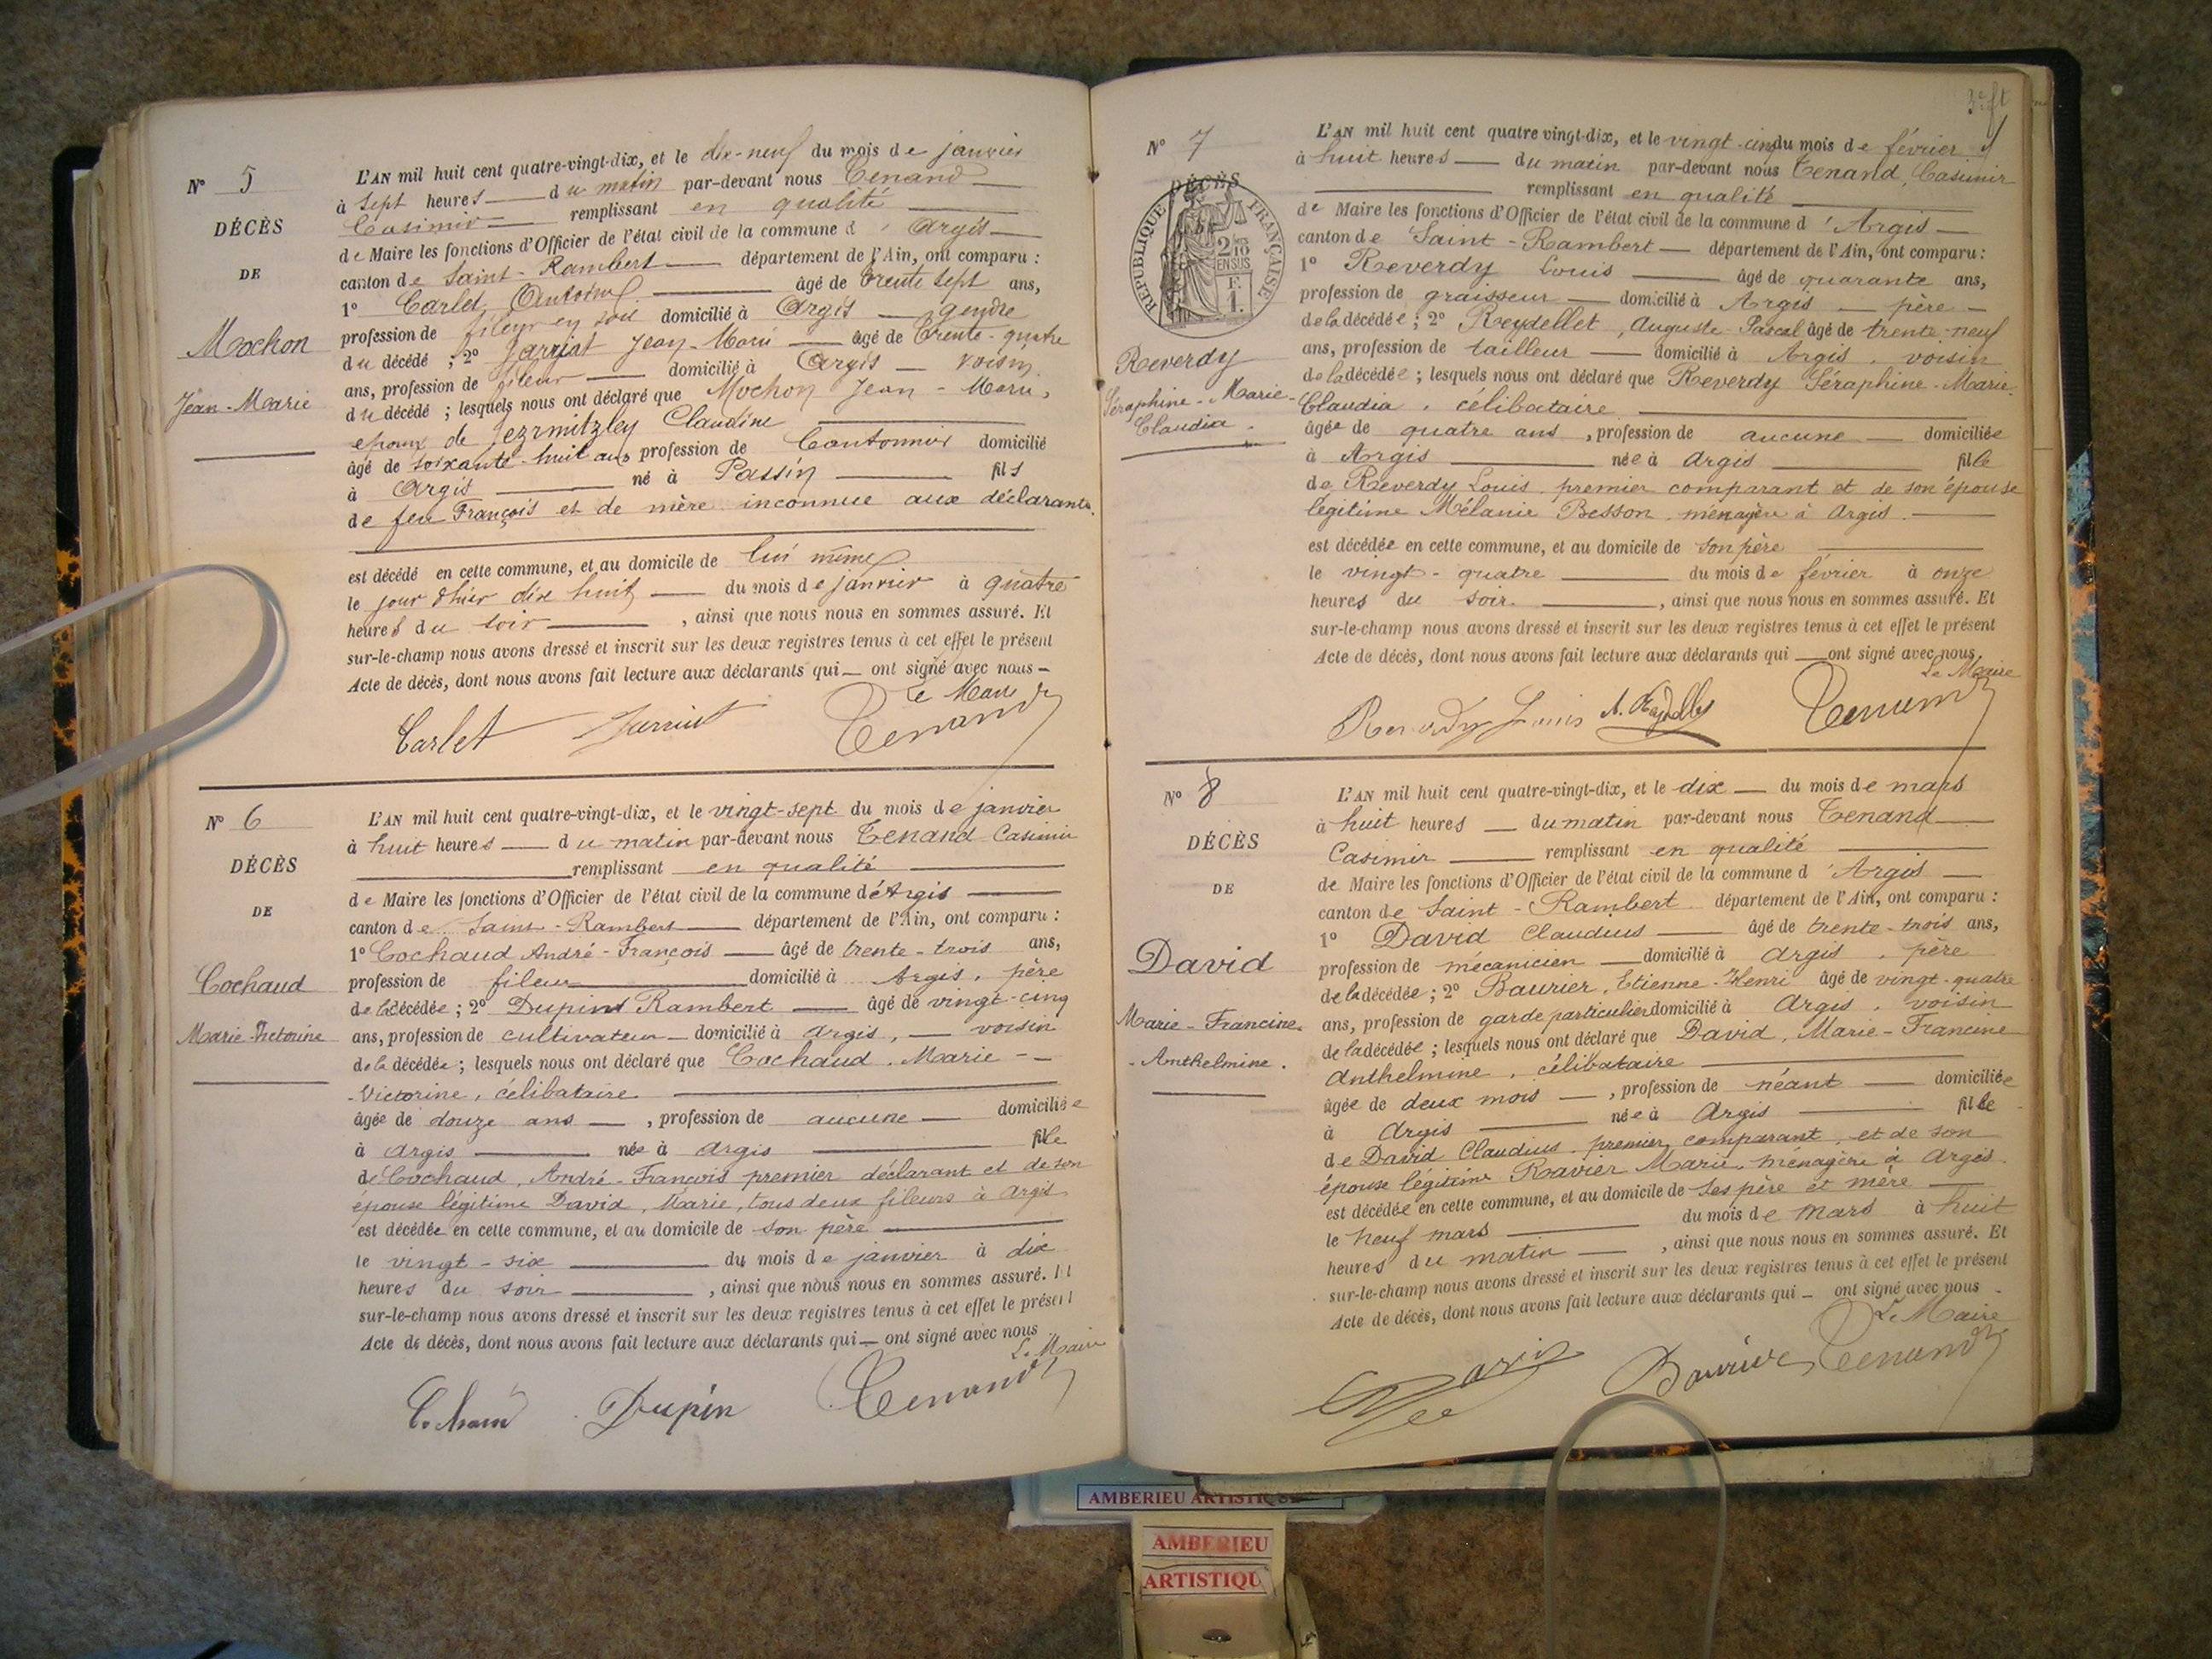 N° 5
DÉCÈS
DE
Mochon
Jean-Marie
L'AN mil huit cent quatre-vingt-dix, et le dix-neuf du mois de janvier
à sept heures du matin par-devant nous Tenand
Casimir remplissant en qualité
de Maire les fonctions d'Officier de l'état civil de la commune d'Argis
canton de Saint-Rambert département de l'Ain, ont comparu :
1° Carlet, Antoine âgé de trente sept ans,
profession de fileur en soie domicilié à Argis gendre
du décédé ; 2° Jarrjat Jean-Marie âgé de trente-quatre
ans, profession de fileur domicilié à Argis voisin
du décédé ; lesquels nous ont déclaré que Mochon Jean-Marie,
époux de Claudine
âgé de soixante-huit ans profession de Cantonnier domicilié
à Argis né à Passin fils
de feu François et de mère inconnue aux déclarants.
est décédé en cette commune, et au domicile de lui même
le jour d'hier dix huit du mois de janvier à quatre
heures du soir , ainsi que nous nous en sommes assuré. Et
sur-le-champ nous avons dressé et inscrit sur les deux registres tenus à cet effet le présent
Acte de décès, dont nous avons fait lecture aux déclarants qui ont signé avec nous
Le Maire
Carlet Tenand
N° 6
DÉCÈS
DE
Cochaud
Marie-Victorine
L'AN mil huit cent quatre-vingt-dix, et le vingt-sept du mois de janvier
à huit heures du matin par-devant nous Tenand Casimir
remplissant en qualité
de Maire les fonctions d'Officier de l'état civil de la commune d'Argis
canton de Saint-Rambert département de l'Ain, ont comparu :
1° Cochaud André-François âgé de trente-trois ans,
profession de fileur domicilié à Argis, père
de la décédée ; 2° Dupin Rambert âgé de vingt-cinq
ans, profession de cultivateur domicilié à Argis, voisin
de la décédée ; lesquels nous ont déclaré que Cochaud, Marie-
-Victorine, célibataire
âgée de douze ans , profession de aucune domiciliée
à Argis née à Argis fille
de Cochaud, André-François premier déclarant et de son
épouse légitime David, Marie, tous deux fileurs à Argis
est décédée en cette commune, et au domicile de son père
le vingt-six du mois de janvier à dix
heures du soir , ainsi que nous nous en sommes assuré. Et
sur-le-champ nous avons dressé et inscrit sur les deux registres tenus à cet effet le présent
Acte de décès, dont nous avons fait lecture aux déclarants qui ont signé avec nous
Le Maire
Cochaud Dupin Tenand
3e ft
N° 7
DÉCÈS
RÉPUBLIQUE FRANÇAISE
2/10 EN SUS
F. 1.
Reverdy
Séraphine-Marie-
Claudia.
L'AN mil huit cent quatre vingt-dix, et le vingt-cinq du mois de février
à huit heures du matin par-devant nous Tenand, Casimir
remplissant en qualité
de Maire les fonctions d'Officier de l'état civil de la commune d'Argis
canton de Saint-Rambert département de l'Ain, ont comparu :
1° Reverdy Louis âgé de quarante ans,
profession de graisseur domicilié à Argis père
de la décédée ; 2° Reydellet, Auguste-Pascal âgé de trente-neuf
ans, profession de tailleur domicilié à Argis, voisin
de la décédée ; lesquels nous ont déclaré que Reverdy Séraphine-Marie-
Claudia, célibataire
âgée de quatre ans , profession de aucune domiciliée
à Argis née à Argis fille
de Reverdy Louis premier comparant et de son épouse
légitime Mélanie Besson, ménagère à Argis.
est décédée en cette commune, et au domicile de son père
le vingt-quatre du mois de février à onze
heures du soir. , ainsi que nous nous en sommes assuré. Et
sur-le-champ nous avons dressé et inscrit sur les deux registres tenus à cet effet le présent
Acte de décès, dont nous avons fait lecture aux déclarants qui ont signé avec nous
Le Maire
Reverdy Louis A. Reydellet Tenand
N° 8
DÉCÈS
DE
David
Marie-Francine-
-Anthelmine.
L'AN mil huit cent quatre vingt-dix, et le dix du mois de mars
à huit heures du matin par-devant nous Tenand
Casimir remplissant en qualité
de Maire les fonctions d'Officier de l'état civil de la commune d'Argis
canton de Saint-Rambert département de l'Ain, ont comparu :
1° David Claudius âgé de trente-trois ans,
profession de mécanicien domicilié à Argis, père
de la décédée ; 2° Baurier, Etienne-Henri âgé de vingt-quatre
ans, profession de garde particulier domicilié à Argis, voisin
de la décédée ; lesquels nous ont déclaré que David, Marie-Francine
Anthelmine, célibataire
âgée de deux mois , profession de néant domiciliée
à Argis née à Argis fille
de David Claudius, premier comparant, et de son
épouse légitime Ravier Marie, ménagère à Argis.
est décédée en cette commune, et au domicile de ses père et mère
le neuf mars du mois de mars à huit
heures du matin , ainsi que nous nous en sommes assuré. Et
sur-le-champ nous avons dressé et inscrit sur les deux registres tenus à cet effet le présent
Acte de décès, dont nous avons fait lecture aux déclarants qui ont signé avec nous
Le Maire
Baurier Tenand
AMBERIEU ARTISTIQUE
AMBERIEU
ARTISTIQU